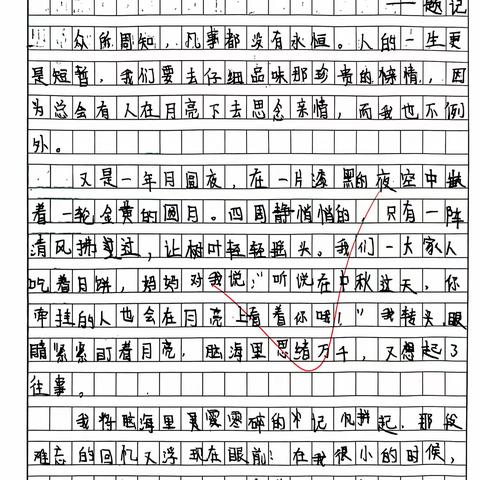 ——题记
众所周知，凡事都没有永恒。人的一生更
是短暂，我们要去仔细品味那珍贵的情，因
为总会有人在月亮下去思念亲情，而我也不例
外。
又是一年月圆夜，在一片漆黑的夜空中
着一轮金黄的圆月。四周静悄悄的，只有一阵
清风拂过，让树叶轻轻摇头。我们一大家人
吃着月饼，妈妈对我说："听说在中秋这天，你
牵挂的人也会在月亮上看着你哦！"我转头，眼
睛紧紧盯着月亮，脑海里思绪万千，又想起了
往事。
我将脑海里零碎的记拼起，那段
难忘的回忆又浮现在眼前：在我很小的时候，